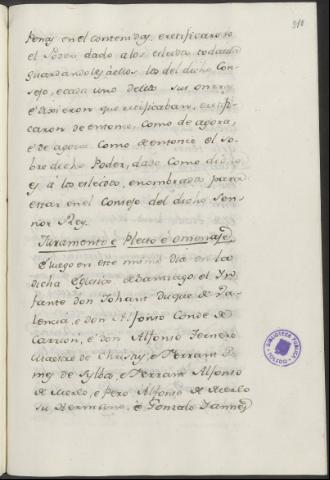 310
Penas en el contenidas, e retificaron
el Poder dado a los eslectos todavia
guardandoles a ellos los del dicho Con-
sejo, e cada uno dellos sus onrras
e dixieron que retificaban, e rati-
ficaron de entonce, como de agora,
e de agora como de entonce el so-
bre dicho Poder, dado como dicho
es á los esleidos, e nombrados para
estar en el Consejo del dicho Sen-
nor Rey.
Juramento e Pleito é omenaje
E luego en este mismo dia en la
dicha Eglesia de Santiago el In-
fante don Johant duque de Pa-
lencia, e don Alfonso Conde de
Carrion, e don Alfonso Ferrero
Maestre de Christus, e Ferrant Go-
mes de Sylba, e Ferrant Alfonso
de Merlo, e Pero Alfonso de Merlo
su Hermano, e Gonzalo Yannes
BIBLIOTECA PUBLICA
TOLEDO